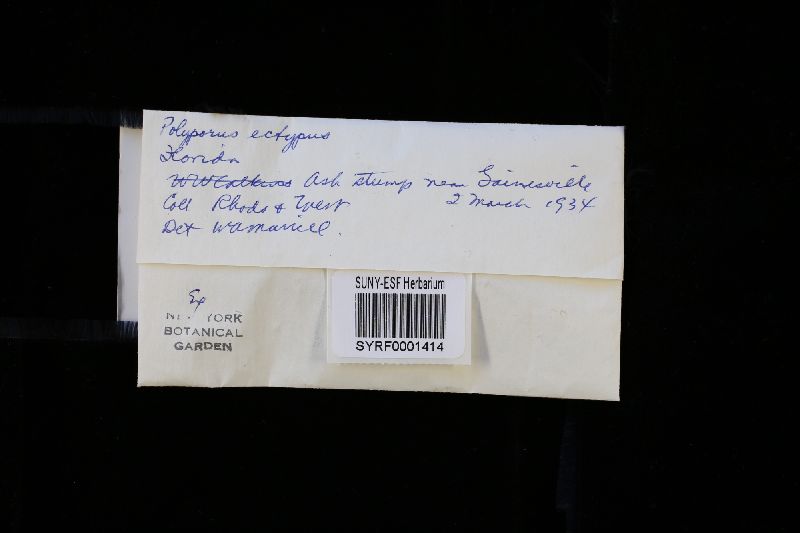 Polyporus ectypus
Florida
W W Calkins Ash stump near Gainesville
Coll Rhods & West 2 March 1934
Det WA Murrill.
Ex
NEW YORK
BOTANICAL
GARDEN
SUNY-ESF Herbarium
SYRF0001414